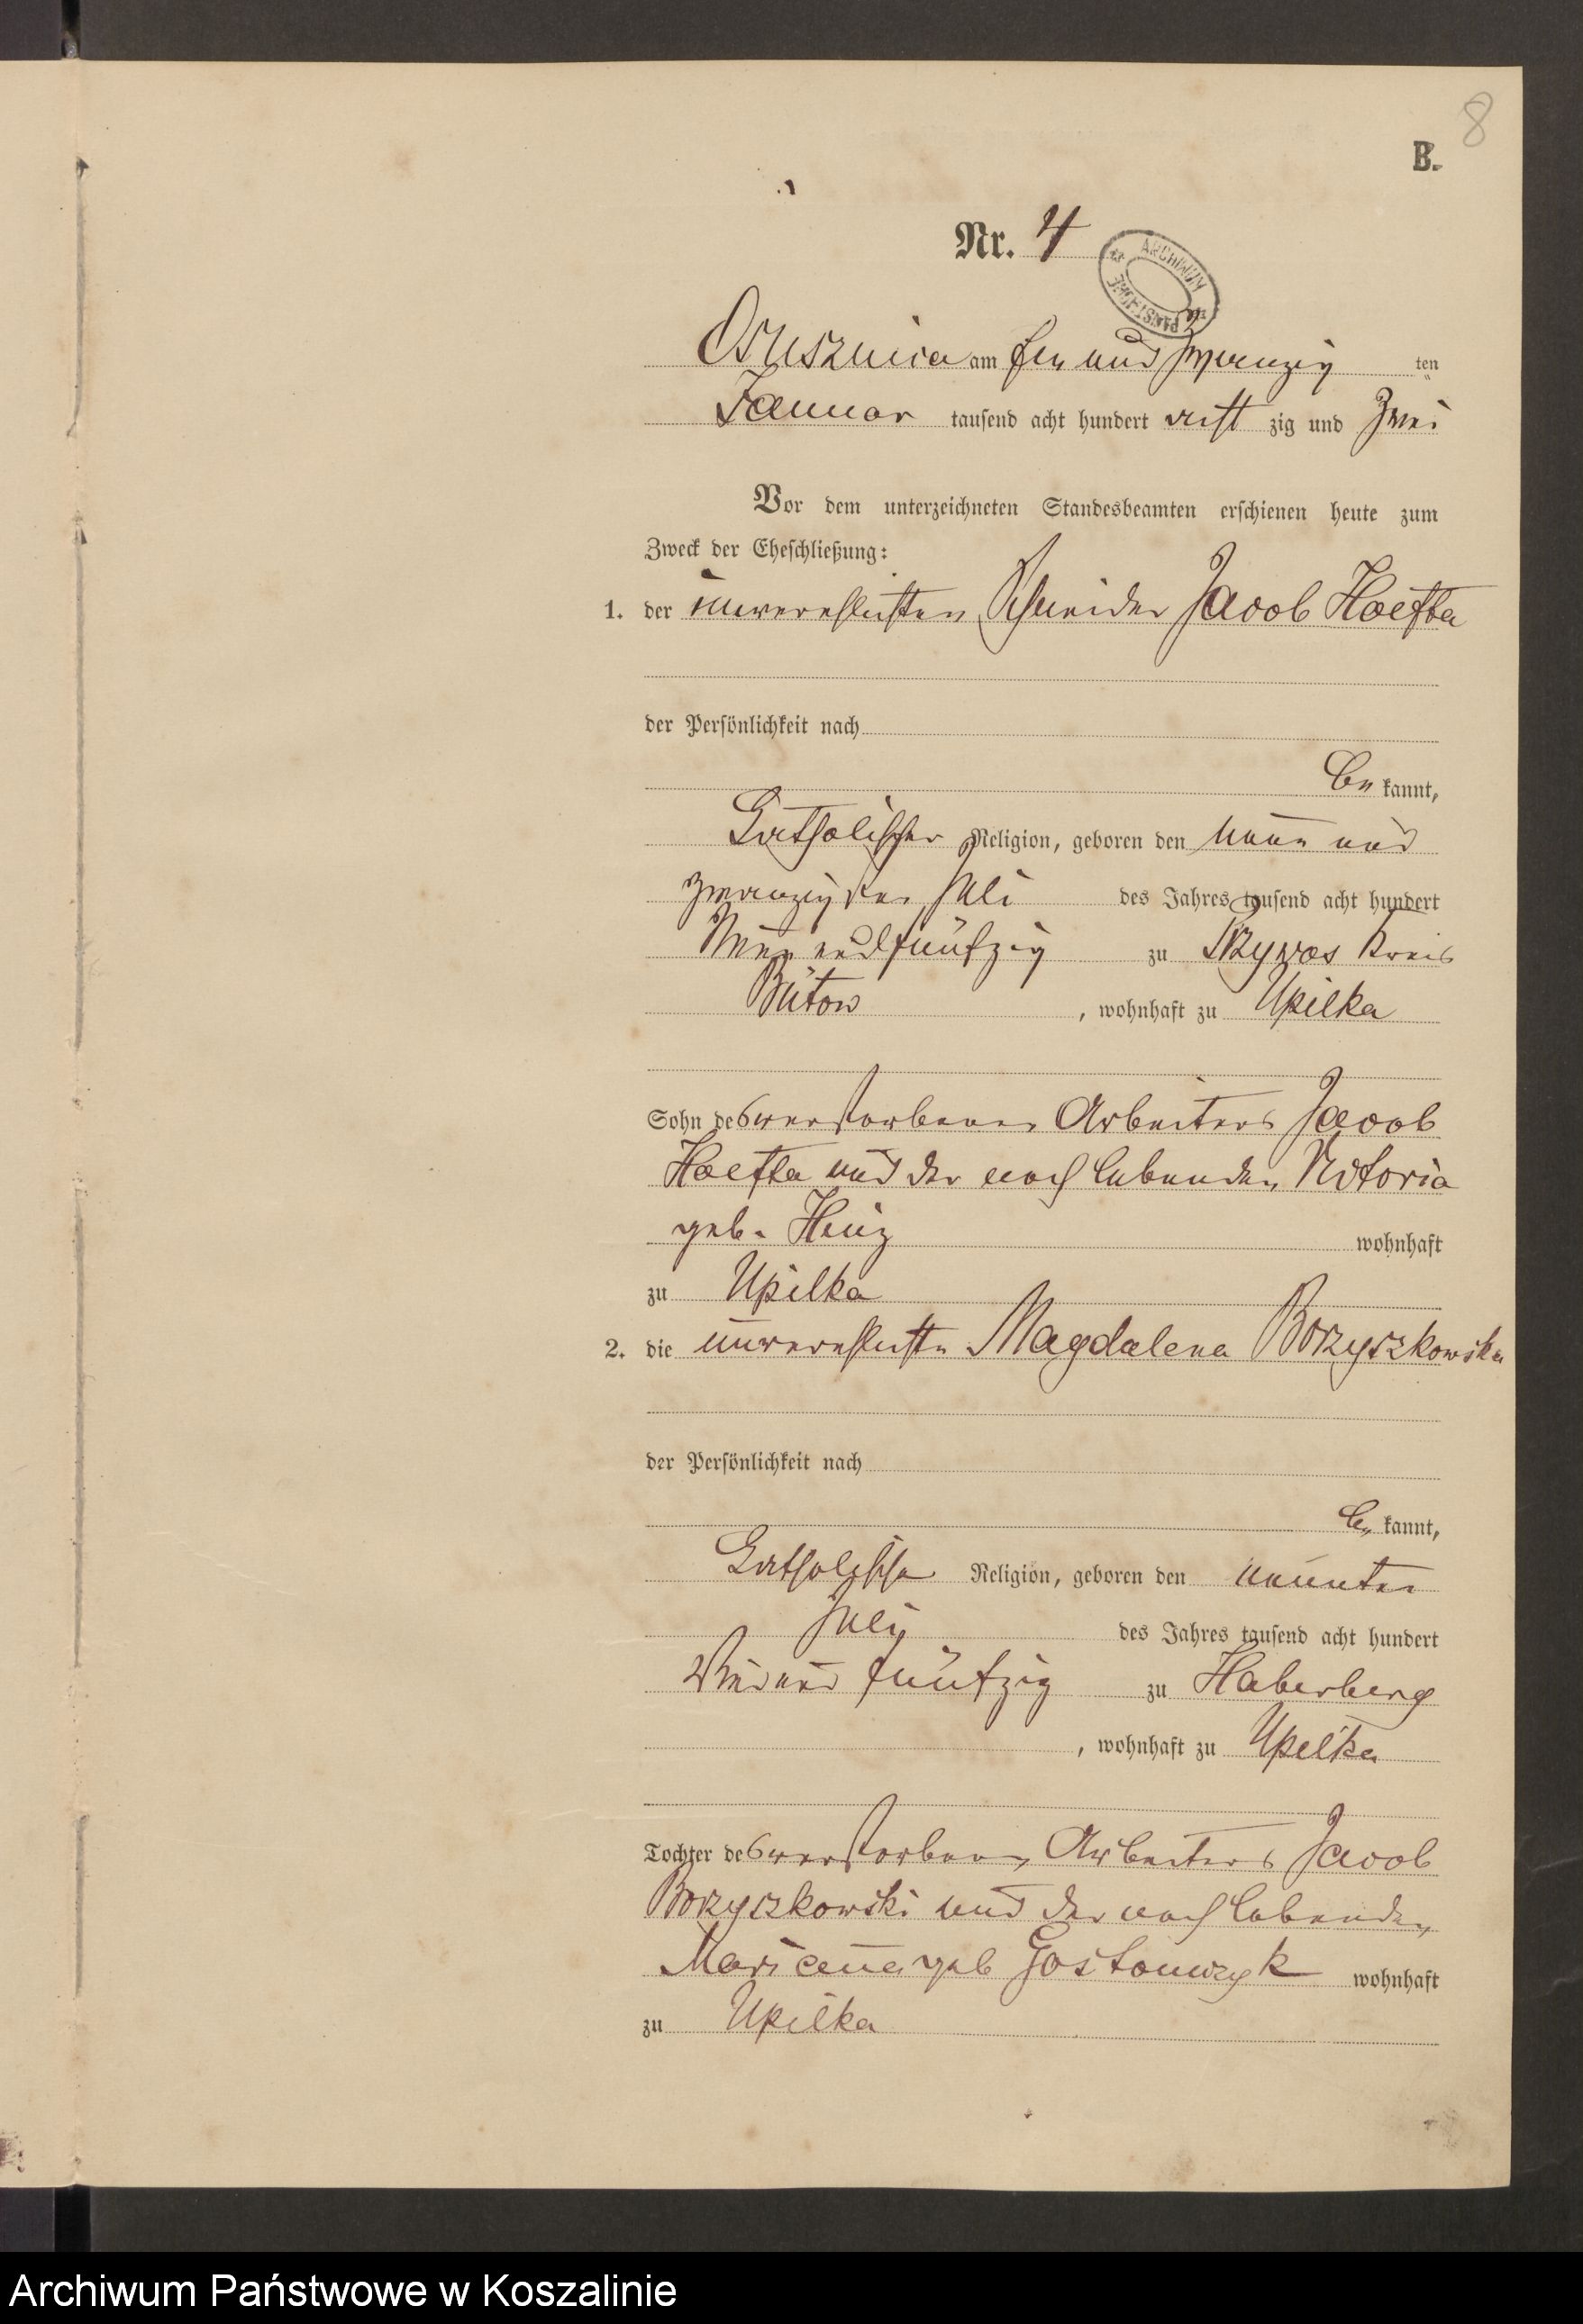 8
B.
Nr. 4
ARCHIWUM PAŃSTWOWE
Ossusznica am ein und zwanzig ten
Januar tausend acht hundert acht zig und Zwei
Vor dem unterzeichneten Standesbeamten erschienen heute zum
Zweck der Eheschließung:
1. der unverehlichten Schneider Jacob Hoefta
der Persönlichkeit nach
be kannt,
Catholischer Religion, geboren den neun und
zwanzigsten Juli des Jahres tausend acht hundert
Neun und fünfzig zu Przywos Kreis
Bütow, wohnhaft zu Upilka
Sohn des verstorbenen Arbeiters Jacob
Hoefta und der noch lebenden Victoria
geb. Heinz wohnhaft
zu Upilka
2. die unverehlichte Magdalena Borzyszkowska
der Persönlichkeit nach
be kannt,
Catholische Religion, geboren den neunten
July des Jahres tausend acht hundert
und fünfzig zu Haberberg
, wohnhaft zu Upilka
Tochter des verstorbenen Arbeiters Jacob
Borzyszkowski und der noch lebenden
Marianna geb Gostomczyk wohnhaft
zu Upilka
Archiwum Państwowe w Koszalinie